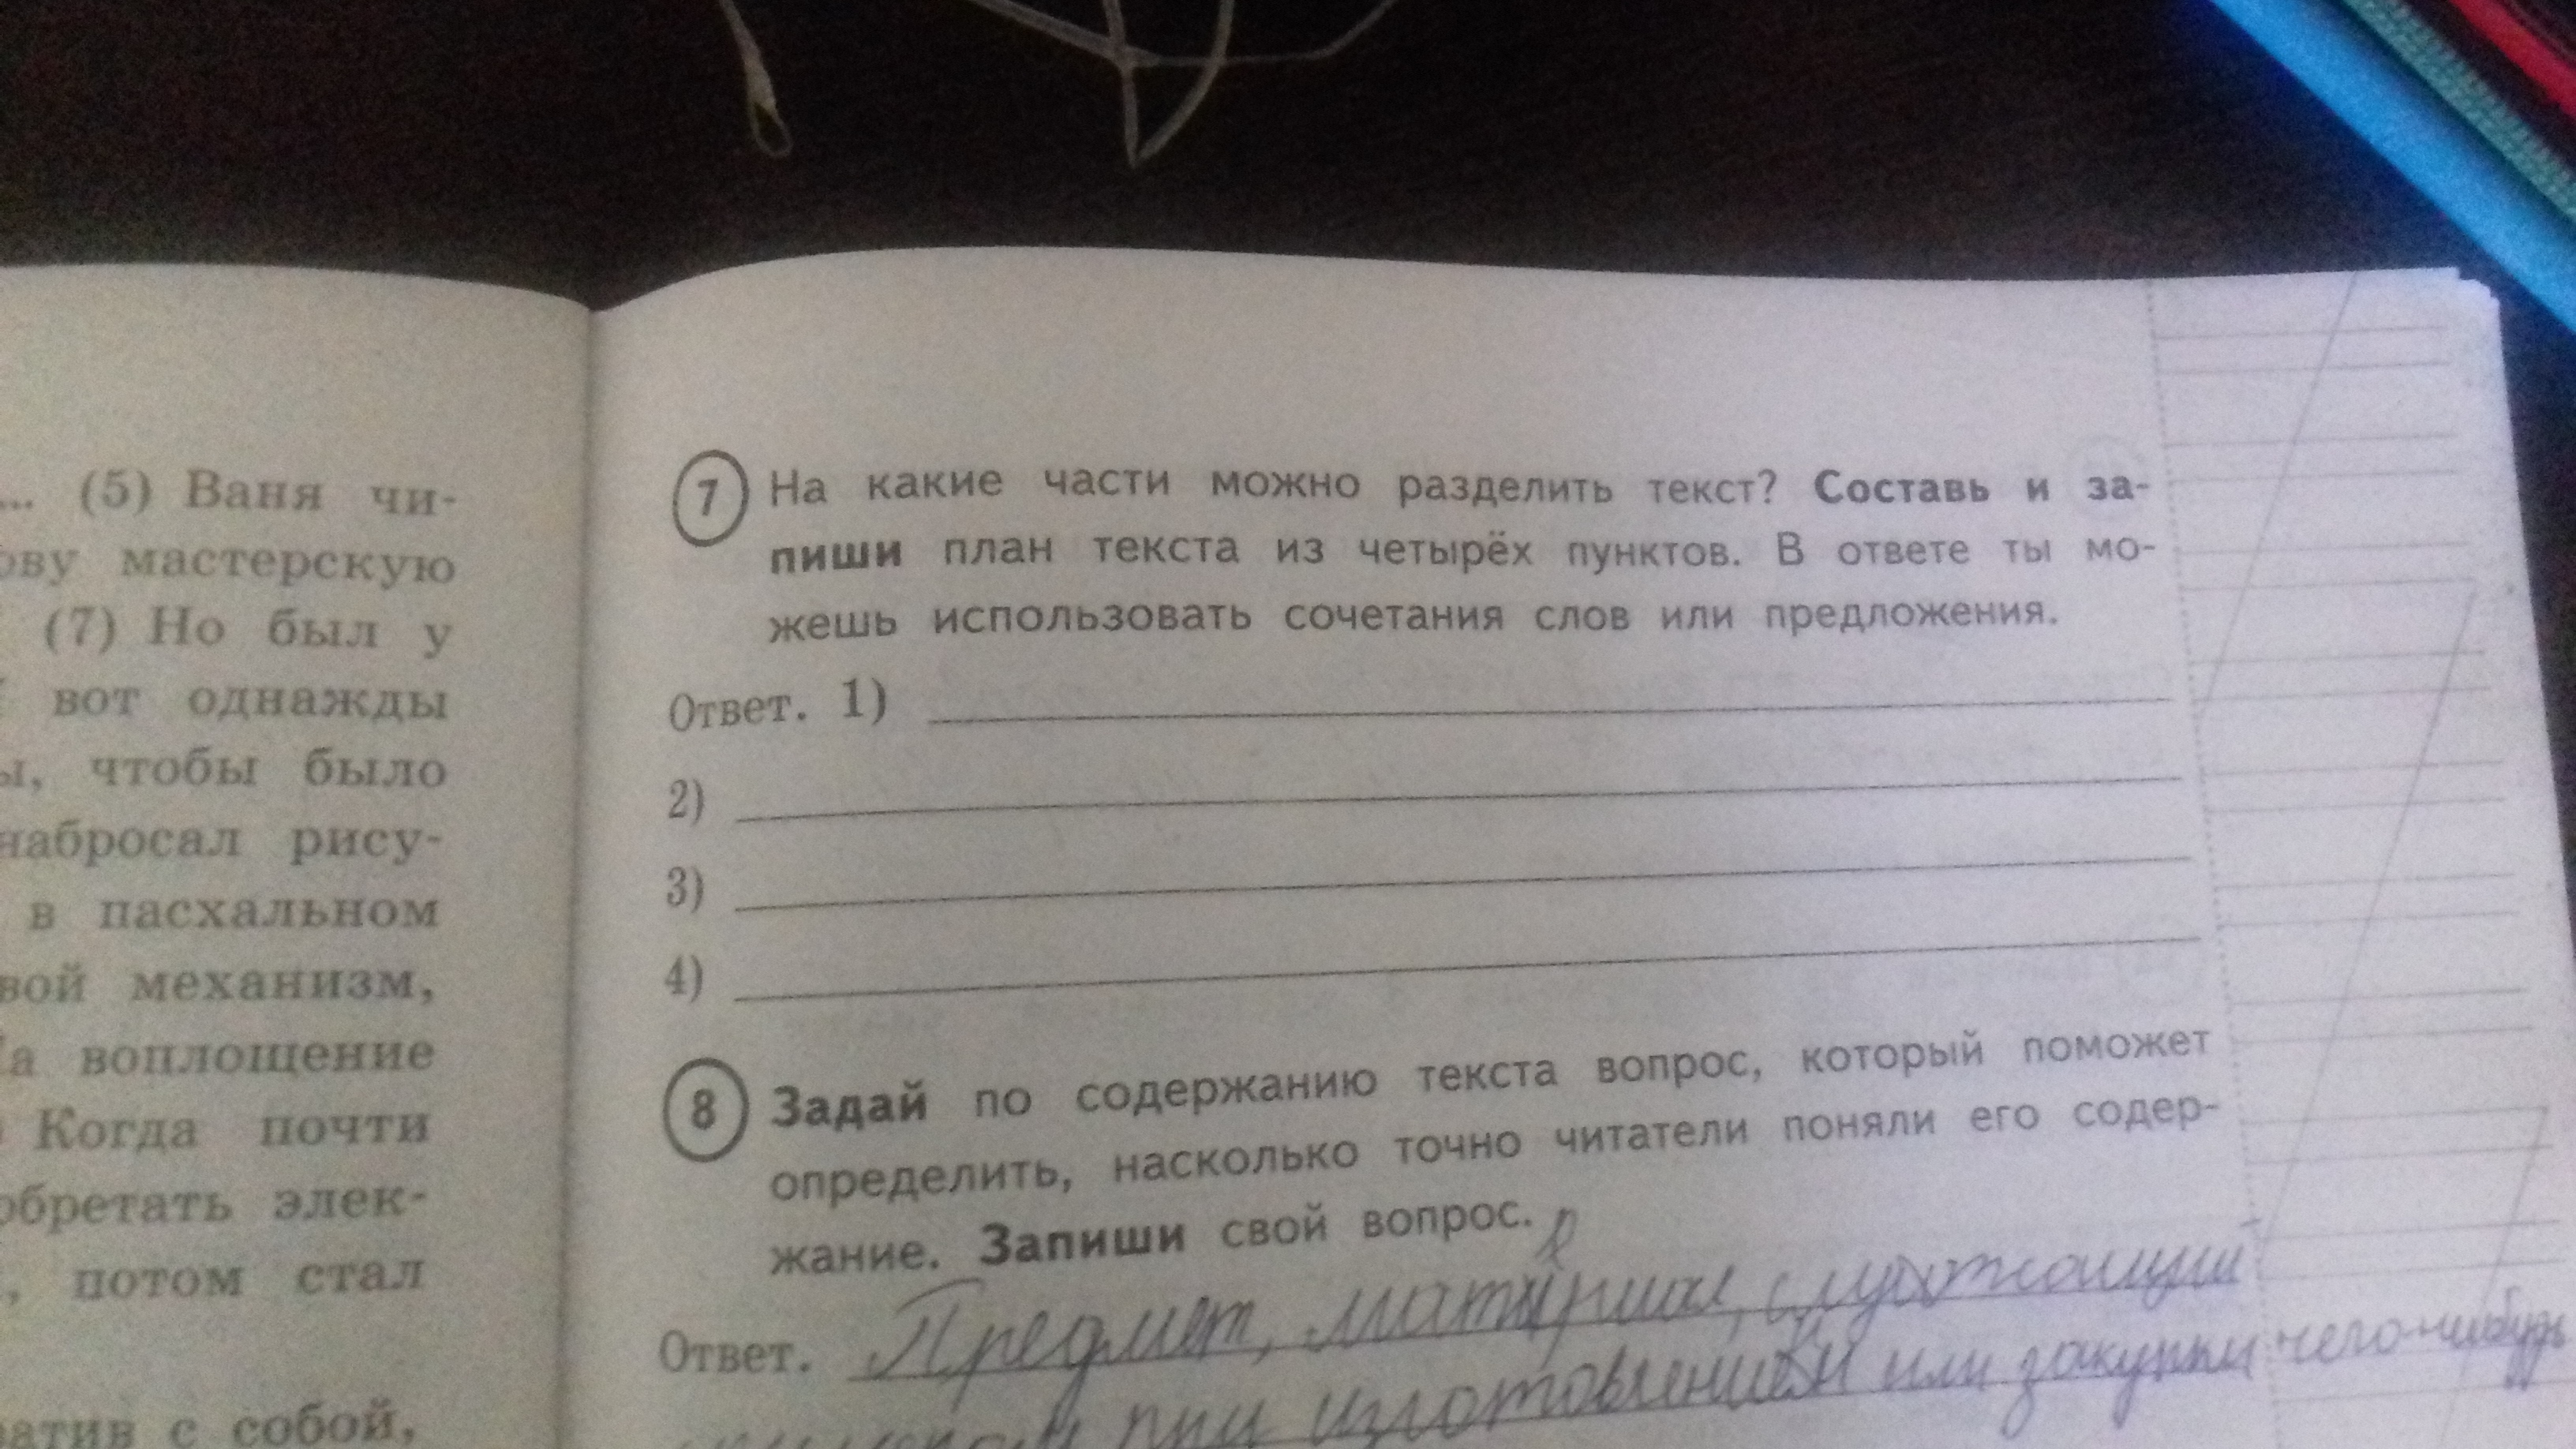 ... (5) Ваня чи-
мастерскую
(7) Но был у
вот однажды
чтобы было
набросал рису-
в пасхальном
механизм,
воплощение
Когда почти
элек-
потом стал
с собой,
7 На какие части можно разделить текст? Составь и за-
пиши план текста из четырёх пунктов. В ответе ты мо-
жешь использовать сочетания слов или предложения.
Ответ. 1)
2)
3)
4)
8 Задай по содержанию текста вопрос, который поможет
определить, насколько точно читатели поняли его содер-
жание. Запиши свой вопрос.
Ответ. Предмет, материал, служащий
при изготовлении или закупки чего-нибудь